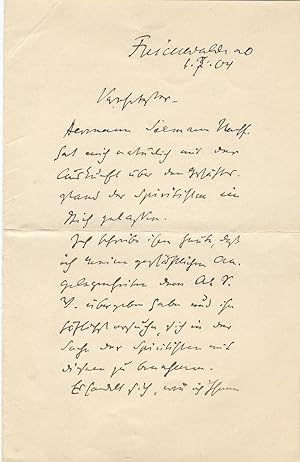 Freienwalde a O
1. X. 04
Verehrtester –
Hermann Nachf.
hat mich natürlich mit der
Auskunft über den
stand der Spiritisten im
Stich gelassen.
Ich schreibe ihm heute, daß
ich meine geschäftlichen An-
gelegenheiten dem A. S.
V. übergeben habe und ihn
höflichst ersuche, sich in der
Sache der Spiritisten mit
diesem zu benehmen.
Es handelt sich, wie ich Ihnen